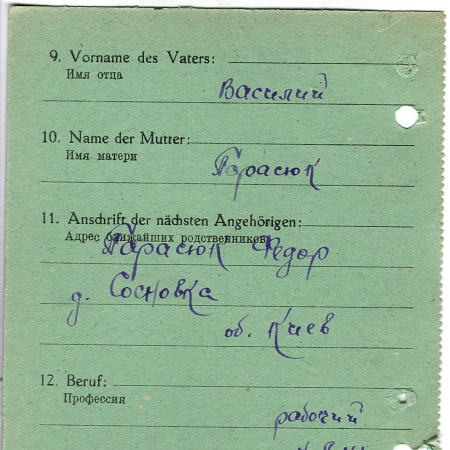 9. Vorname des Vaters:
Имя отца
Василий
10. Name der Mutter:
Имя матери
Тарасюк
11. Anschrift der nächsten Angehörigen:
Адрес ближайших родственников
Тарасюк Федор
д. Сосновка
об. Киев
12. Beruf:
Профессия
рабочий